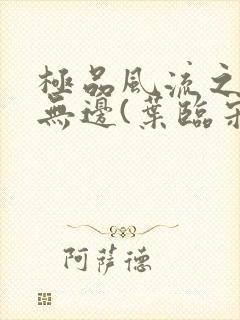 極品風流之
無邊(葉臨
阿薩德